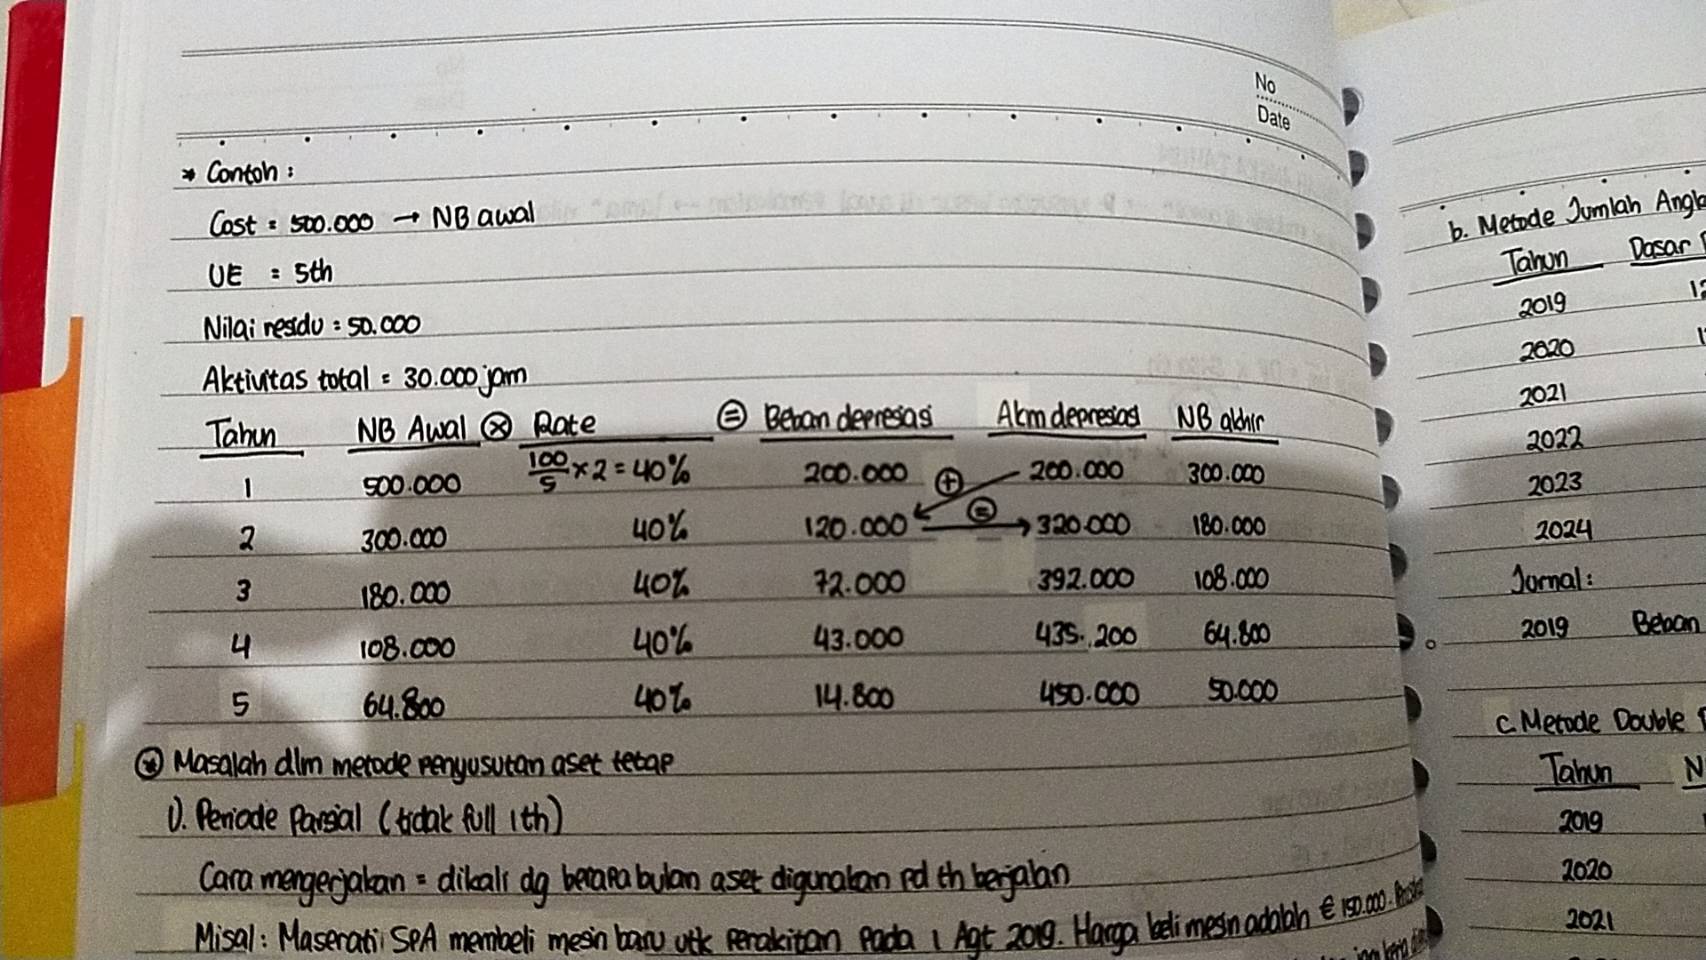 No
Date
* Contoh :
Cost = 500.000 → NB awal
UE = 5th
Nilai residu = 50.000
Aktivitas total = 30.000 jam
Tahun NB Awal ⊗ Rate ⊜ Beban depresiasi Akm depresiasi NB akhir
1 500.000 100/5 × 2 = 40% 200.000 ⊕ 200.000 300.000
2 300.000 40% 120.000 ⊜ 320.000 180.000
3 180.000 40% 72.000 392.000 108.000
4 108.000 40% 43.000 435.200 64.800
5 64.800 40% 14.800 450.000 50.000
⊛ Masalah dlm metode penyusutan aset tetap
1). Periode Parsial (tidak full 1th)
Cara mengerjakan = dikali dg berapa bulan aset digunakan pd th berjalan
Misal : Maserati SPA membeli mesin baru utk perakitan pada 1 Agt 2019. Harga beli mesin adalah € 150.000.
b. Metode Jumlah
Tahun Dasar
2019
2020
2021
2022
2023
2024
Jurnal :
2019 Beban
C. Metode Double
Tahun N
2019
2020
2021